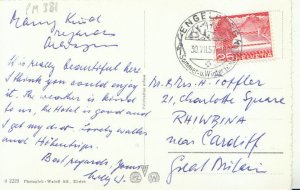 PM 381
Many kind
regards
It is really beautiful here
I think you could enjoy
it. The weather is kind
to us, the Hotel is good and
I get my diet. Lovely walks
and Höhentrips.
Best regards, yours
Willy J.
ENGELB
30.VII.57
Sommer- u. Winter
HELVETIA
Mr. & Mrs. H. Höfler
21, Charlotte Square
RHIWBINA
near Cardiff
Great Britain
H 2223 Photoglob-Wehrli AG, Zürich